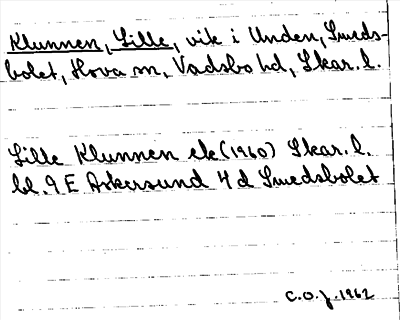 Klunnen, Lille, vik i Unden, Smeds-
bolet, Hova sn, Vadsbo hd, Skar. l.
Lille Klunnen ek (1960) Skar. l.
bl. 9 E Askersund 4 d Smedsbolet
C.O.J. 1962